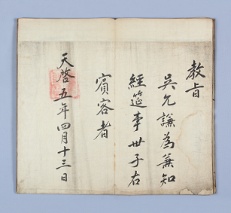 教旨
吳允謙為兼知
經筵事世子右
賓客者
天啓五年四月十三日